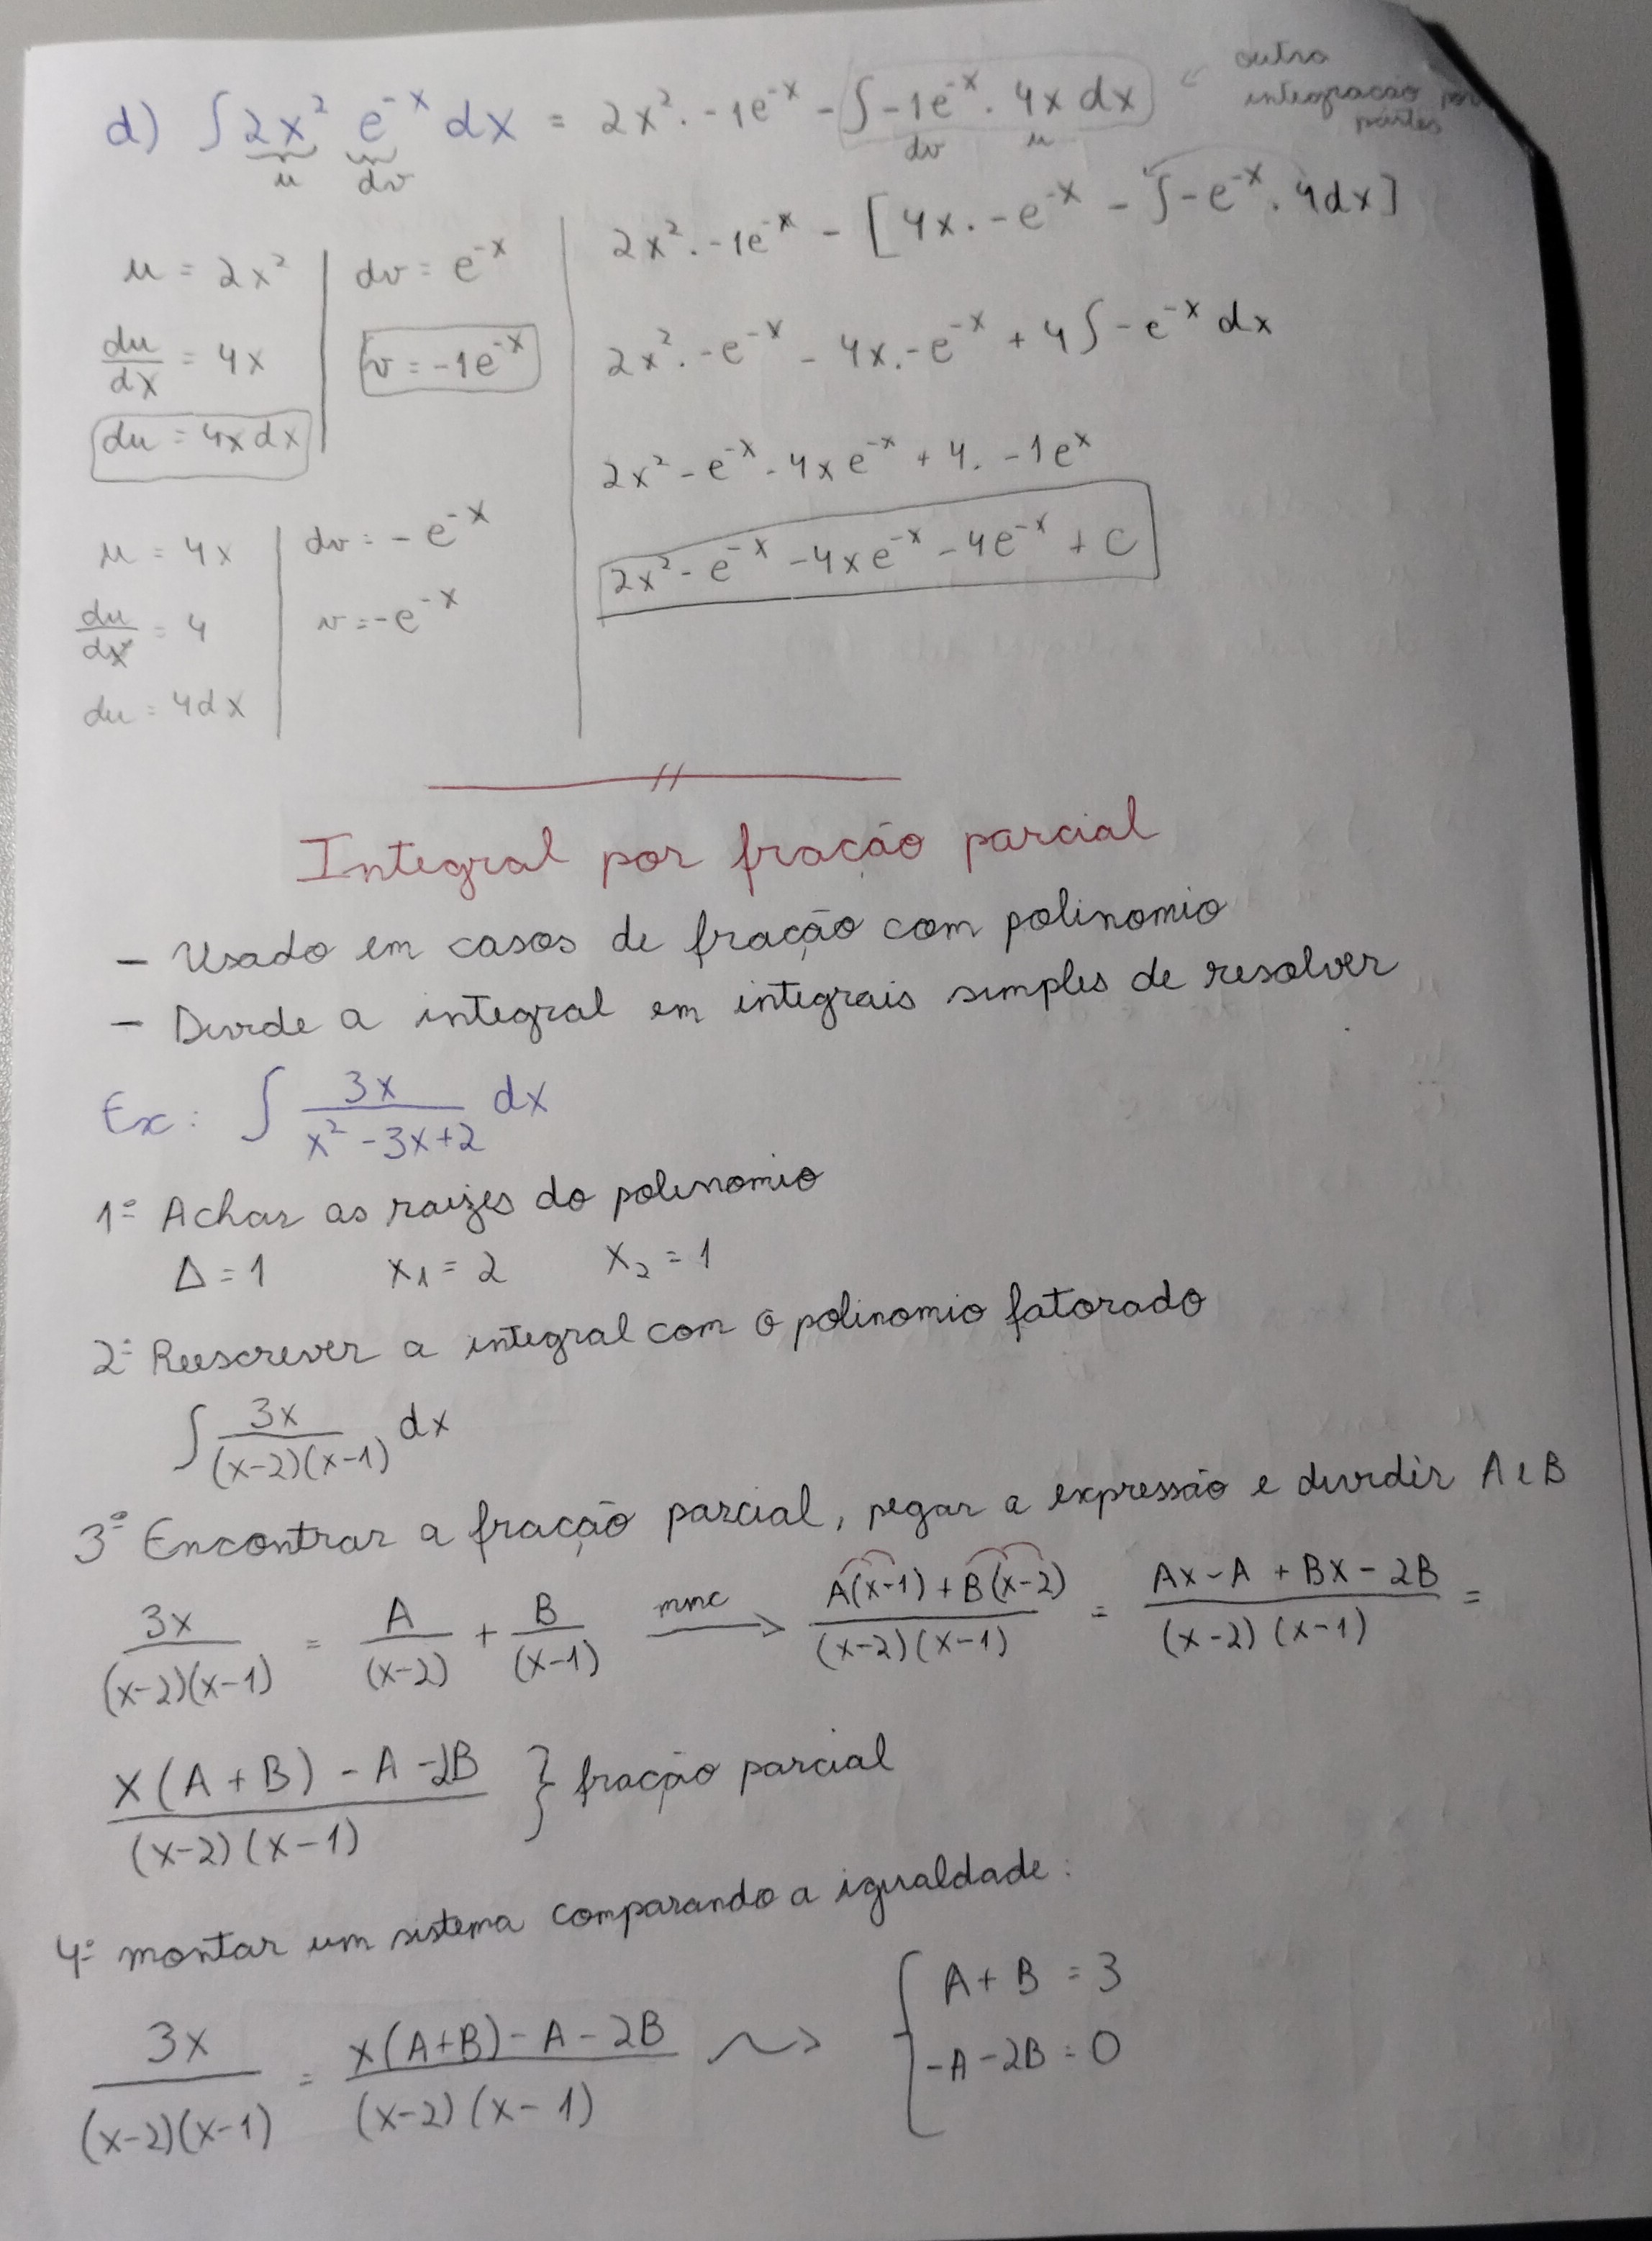 d) ∫ 2x² e^-x dx = 2x² . -1e^-x - ∫ -1e^-x . 4x dx ← outra integração por partes
u dv dv u
u = 2x² | dv = e^-x
du/dx = 4x | v = -1e^-x
du = 4x dx
u = 4x | dv = -e^-x
du/dx = 4 | v = -e^-x
du = 4dx
2x² . -1e^-x - [4x . -e^-x - ∫ -e^-x . 4dx]
2x² . -e^-x - 4x . -e^-x + 4 ∫ -e^-x dx
2x² - e^-x - 4x e^-x + 4 . -1e^x
2x² - e^-x - 4x e^-x - 4e^-x + C
//
Integral por fração parcial
- Usado em casos de fração com polinomio
- Divide a integral em integrais simples de resolver
Ex: ∫ 3x/(x² - 3x + 2) dx
1º Achar as raizes do polinomio
Δ = 1 x₁ = 2 x₂ = 1
2º Reescrever a integral com o polinomio fatorado
∫ 3x/((x-2)(x-1)) dx
3º Encontrar a fração parcial, pegar a expressão e dividir A e B
3x/((x-2)(x-1)) = A/(x-2) + B/(x-1) mmc → (A(x-1) + B(x-2))/((x-2)(x-1)) = (Ax - A + Bx - 2B)/((x-2)(x-1)) =
(x(A+B) - A - 2B)/((x-2)(x-1)) } fração parcial
4º montar um sistema comparando a igualdade:
3x/((x-2)(x-1)) = (x(A+B) - A - 2B)/((x-2)(x-1)) ⇝ { A + B = 3
-A - 2B = 0